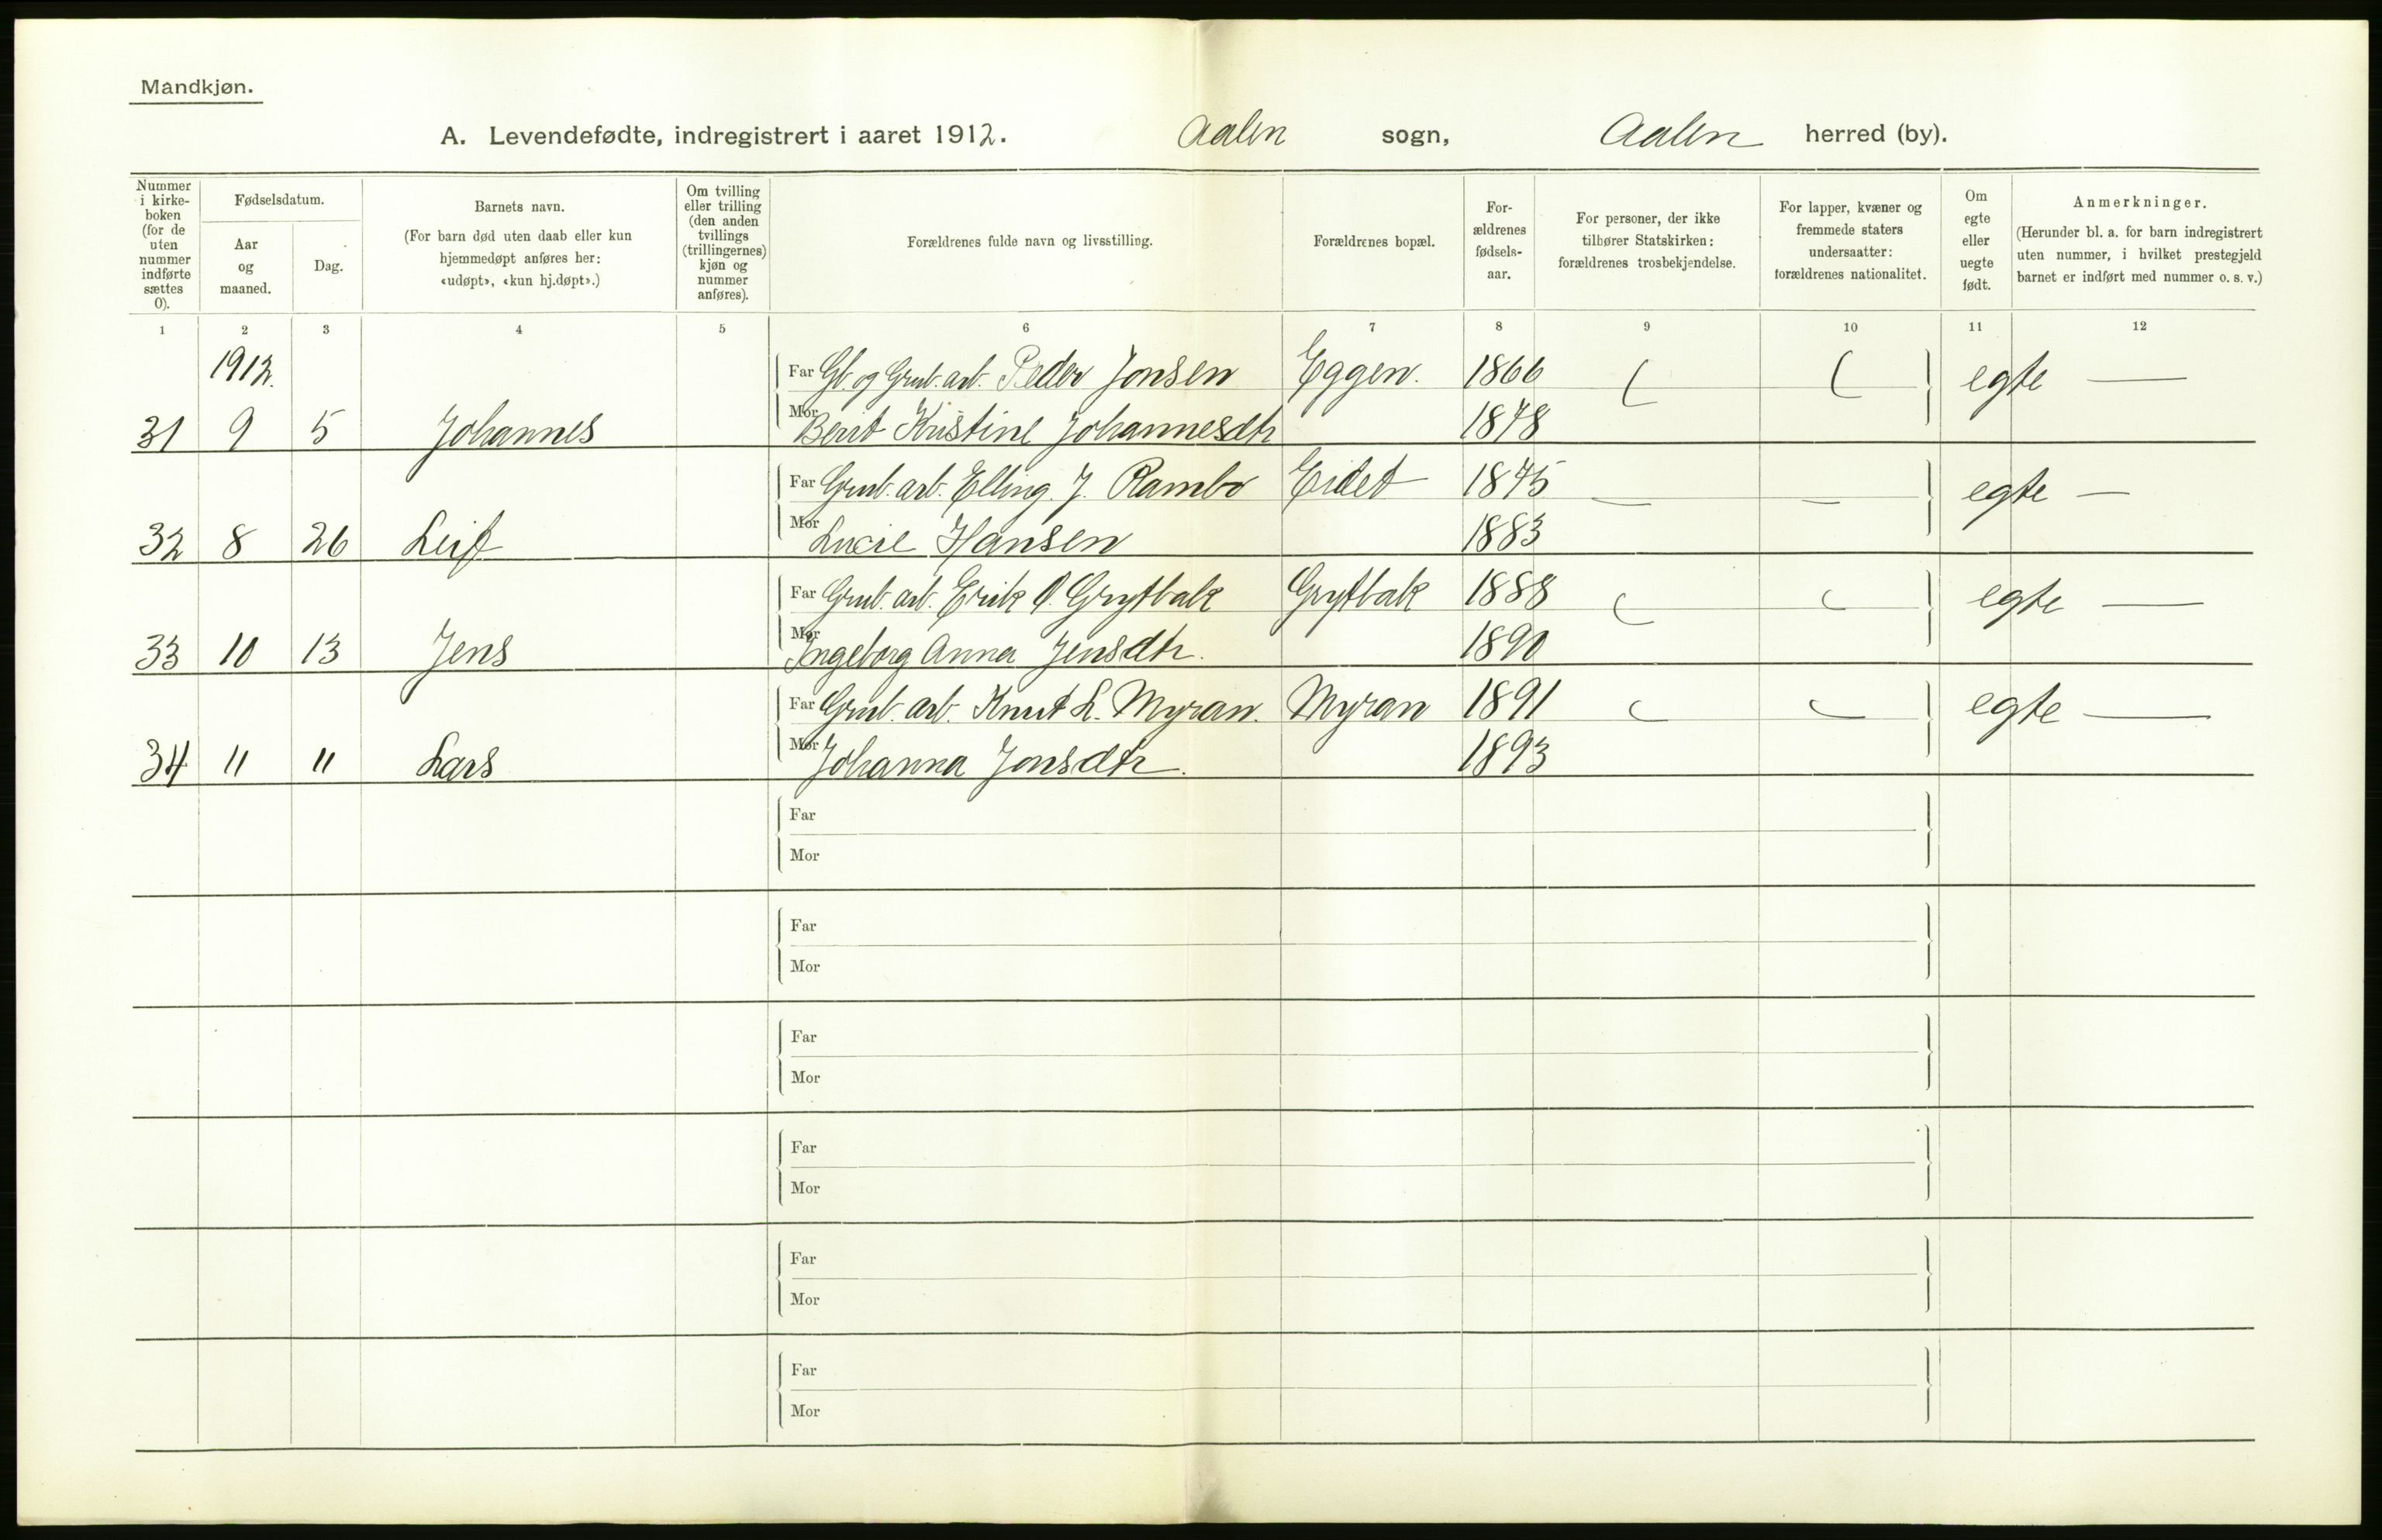 Mandkjøn.
A. Levendefødte, indregistrert i aaret 1912. Aalen sogn, Aalen herred (by).
Nummer i kirke-boken (for de uten nummer indførte sættes 0).
Fødselsdatum.
Aar og maaned.
Dag.
Barnets navn.
(For barn død uten daab eller kun hjemmedøpt anføres her: «udøpt», «kun hj.døpt».)
Om tvilling eller trilling (den anden tvillings (trillingernes) kjøn og nummer anføres).
Forældrenes fulde navn og livsstilling.
Forældrenes bopæl.
For-ældrenes fødsels-aar.
For personer, der ikke tilhører Statskirken: forældrenes trosbekjendelse.
For lapper, kvæner og fremmede staters undersaatter: forældrenes nationalitet.
Om egte eller uegte født.
Anmerkninger.
(Herunder bl. a. for barn indregistrert uten nummer, i hvilket prestegjeld barnet er indført med nummer o. s. v.)
1 2 3 4 5 6 7 8 9 10 11 12
1912. Far Gb. og Grub. arb. Peder Jonsen Eggen. 1866 egte —
31 9 5 Johannes Mor Berit Kristine Johannesdtr 1878
Far Grub. arb. Elling J. Rambo Eidet 1875 — — egte —
32 8 26 Leif Mor Lucie Hansen 1883
Far Grub. arb. Erik O. Grytbak Grytbak 1888 egte —
33 10 13 Jens Mor Ingeborg Anna Jensdtr. 1890
Far Grub. arb. Knut L. Myran. Myran 1891 egte —
34 11 11 Lars Mor Johanna Jonsdtr. 1893
Far
Mor
Far
Mor
Far
Mor
Far
Mor
Far
Mor
Far
Mor